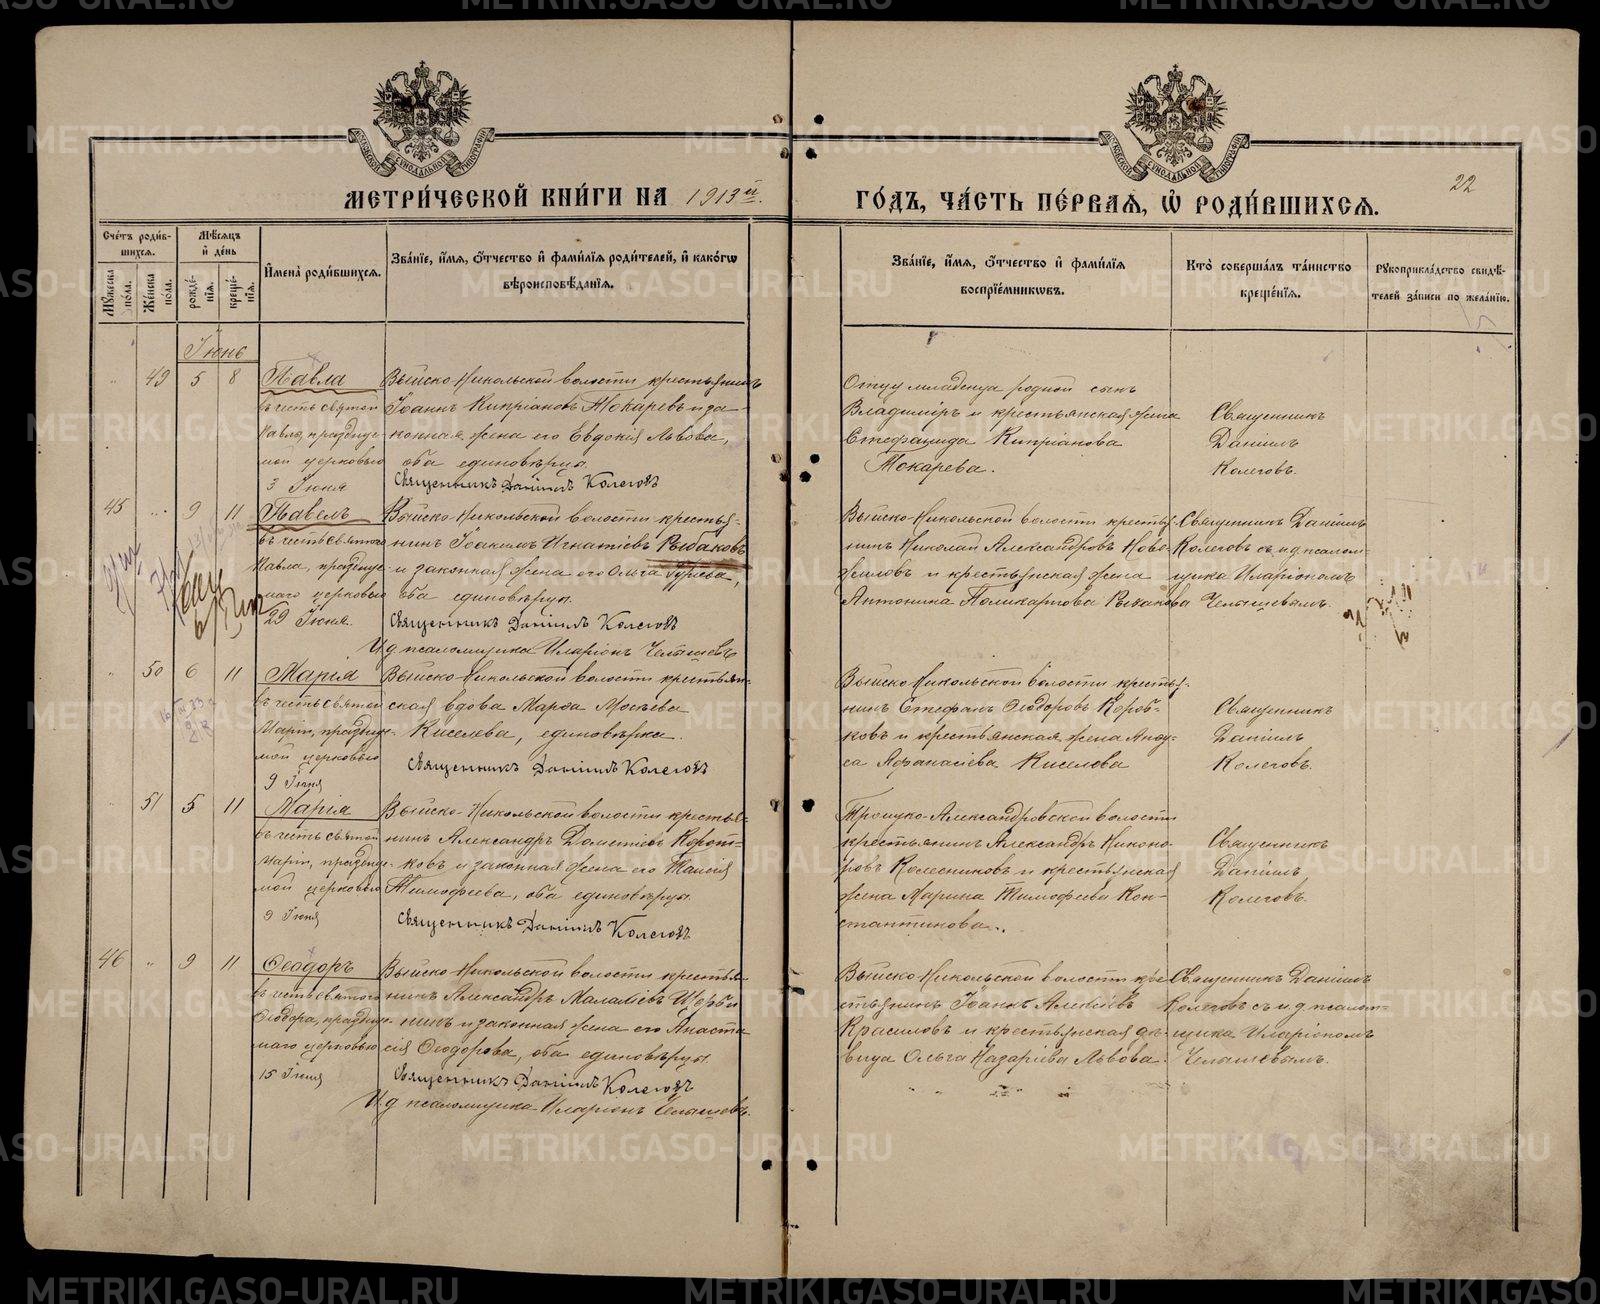 МЕТРИ́ЧЕСКОЙ КНИ́ГИ НА 1913 й
ГО́ДЪ, ЧА́СТЬ ПЕ́РВАѦ, Ѡ҆ РОДИ́ВШИХСѦ.
22
Сче́тъ роди́в-
шихся.
Му́жеска по́ла.
Же́нска по́ла.
Мѣ́сяцъ
и҆ де́нь
рожде́-
нїя.
креще́-
нїя.
И҆мена̀ роди́вшихся.
Зва́нїе, и҆́мя, ѻ҆́тчество и҆ фами́лїя роди́телей, и҆ како́гѡ
вѣроисповѣ́данїя.
Зва́нїе, и҆́мя, ѻ҆́тчество и҆ фами́лїя
воспрїе́мникѡвъ.
Кто̀ соверша́лъ та́инство
креще́нїя.
Рꙋкоприкла́дство свидѣ́-
телей за́писи по жела́нїю.
Іюнь
49 5 8 Павла
въ честь святой
Павлы, праздꙋе-
мой церковью
3 Іюня
Выйско-Никольской волости крестьянинъ
Іоаннъ Кипріановъ Токаревъ и за-
конная жена его Евдокія Львова,
оба единовѣрцы.
Священникъ Даніилъ Колеговъ
Отцу младенца родной сынъ
Владиміръ и крестьянская жена
Стефанида Кипріанова
Токарева.
Священникъ
Даніилъ
Колеговъ.
45 9 11 Павелъ
въ честь святаго
Павла, празднуе-
маго церковью
29 Іюня.
Выйско-Никольской волости крестья-
нинъ Іоакимъ Игнатіевъ Рыбаковъ
и законная жена его Ольга Гурьева,
оба единовѣрцы.
Священникъ Даніилъ Колеговъ
И.д псаломщика Иларіонъ Челышевъ
Выйско-Никольской волости крестья-
нинъ Николай Александровъ Ново-
жиловъ и крестьянская жена
Антонина Поликарпова Рыбакова
Священникъ Даніилъ
Колеговъ съ и.д псалом-
щика Иларіономъ
Челышевымъ.
50 6 11 Марія
въ честь святой
Маріи, празднуе-
мой церковью
9 Іюня
Выйско-Никольской волости крестьян-
ская вдова Марѳа Мокѣева
Киселева, единовѣрка.
Священникъ Даніилъ Колеговъ
Выйско-Никольской волости крестья-
нинъ Стефанъ Ѳеодоровъ Короб-
ковъ и крестьянская жена Анѳу-
са Аѳанасіева Киселева
Священникъ
Даніилъ
Колеговъ.
51 5 11 Марія
въ честь святой
Маріи, празднуе-
мой церковью
9 Іюня
Выйско-Никольской волости крестья-
нинъ Александръ Дометіевъ Корот-
ковъ и законная жена его Таисія
Тимофеева, оба единовѣрцы
Священникъ Даніилъ Колеговъ
Троицко-Александровской волости
крестьянинъ Александръ Никоно-
ровъ Колесниковъ и крестьянская
жена Марина Тимофеева Кон-
стантинова.
Священникъ
Даніилъ
Колеговъ.
46 9 11 Ѳеодоръ
въ честь святаго
Ѳеодора, праздну-
маго церковью
15 Іюня
Выйско-Никольской волости крестья-
нинъ Александръ Малаѳіевъ Щерби-
нинъ и законная жена его Анаста-
сія Ѳеодорова, оба единовѣрцы
Священникъ Даніилъ Колеговъ
И.д псаломщика Иларіонъ Челышевъ.
Выйско-Никольской волости кре-
стьянинъ Іоаннъ Алексіевъ
Красиловъ и крестьянская дѣ-
вица Ольга Назаріева Львова
Священникъ Даніилъ
Колеговъ съ и.д псалом-
щика Иларіономъ
Челышевымъ.
METRIKI.GASO-URAL.RU